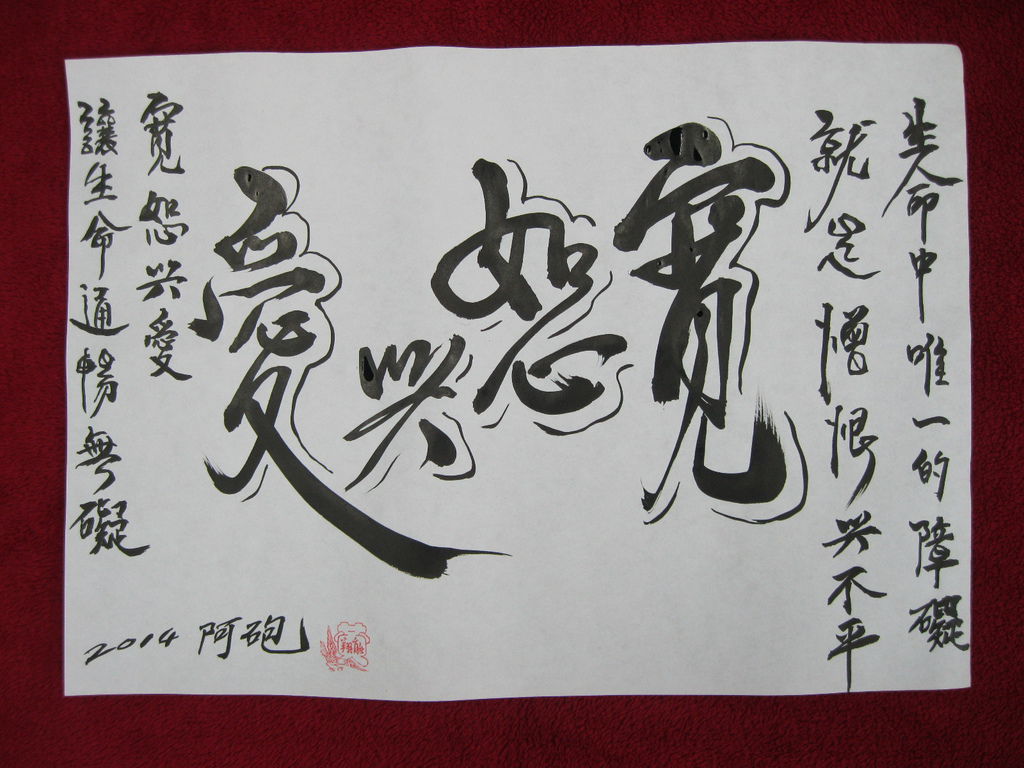 生命中唯一的障礙
就是憎恨兴不平
寬恕兴愛
寬恕兴愛
讓生命通暢無礙
2014 阿砲